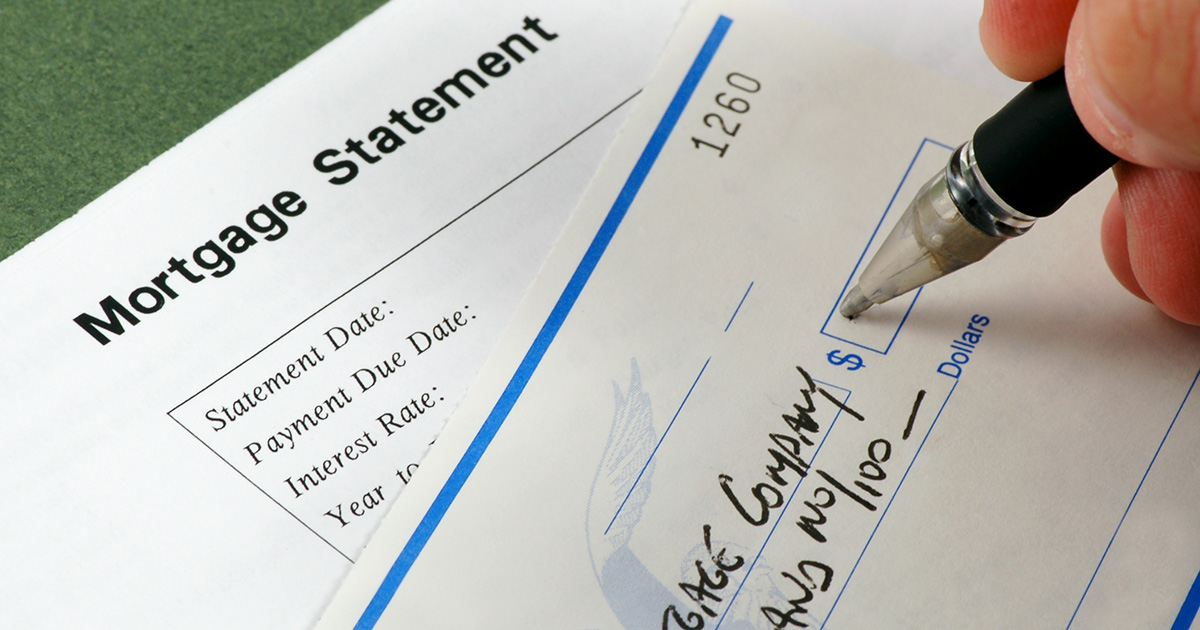 Mortgage Statement
Statement Date:
Payment Due Date:
Interest Rate:
Year to
1260
$
GAGE Company
no/100
Dollars